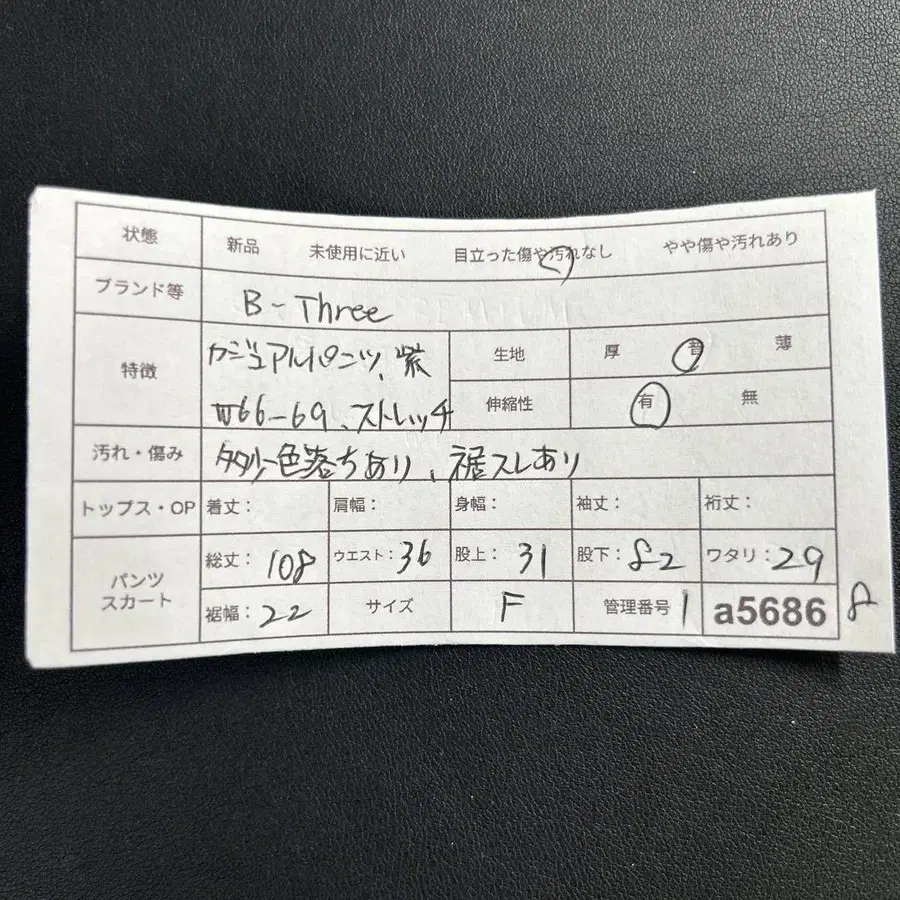 状態 新品 未使用に近い 目立った傷や汚れなし やや傷や汚れあり
ブランド等 B-Three
特徴 カジュアルパンツ、紫
W66-69、ストレッチ
生地 厚 普 薄
伸縮性 有 無
汚れ・傷み 多少色落ちあり、裾スレあり
トップス・OP 着丈: 肩幅: 身幅: 袖丈: 裄丈:
パンツ
スカート
総丈: 108 ウエスト: 36 股上: 31 股下: 82 ワタリ: 29
裾幅: 22 サイズ F 管理番号 1 a5686 8